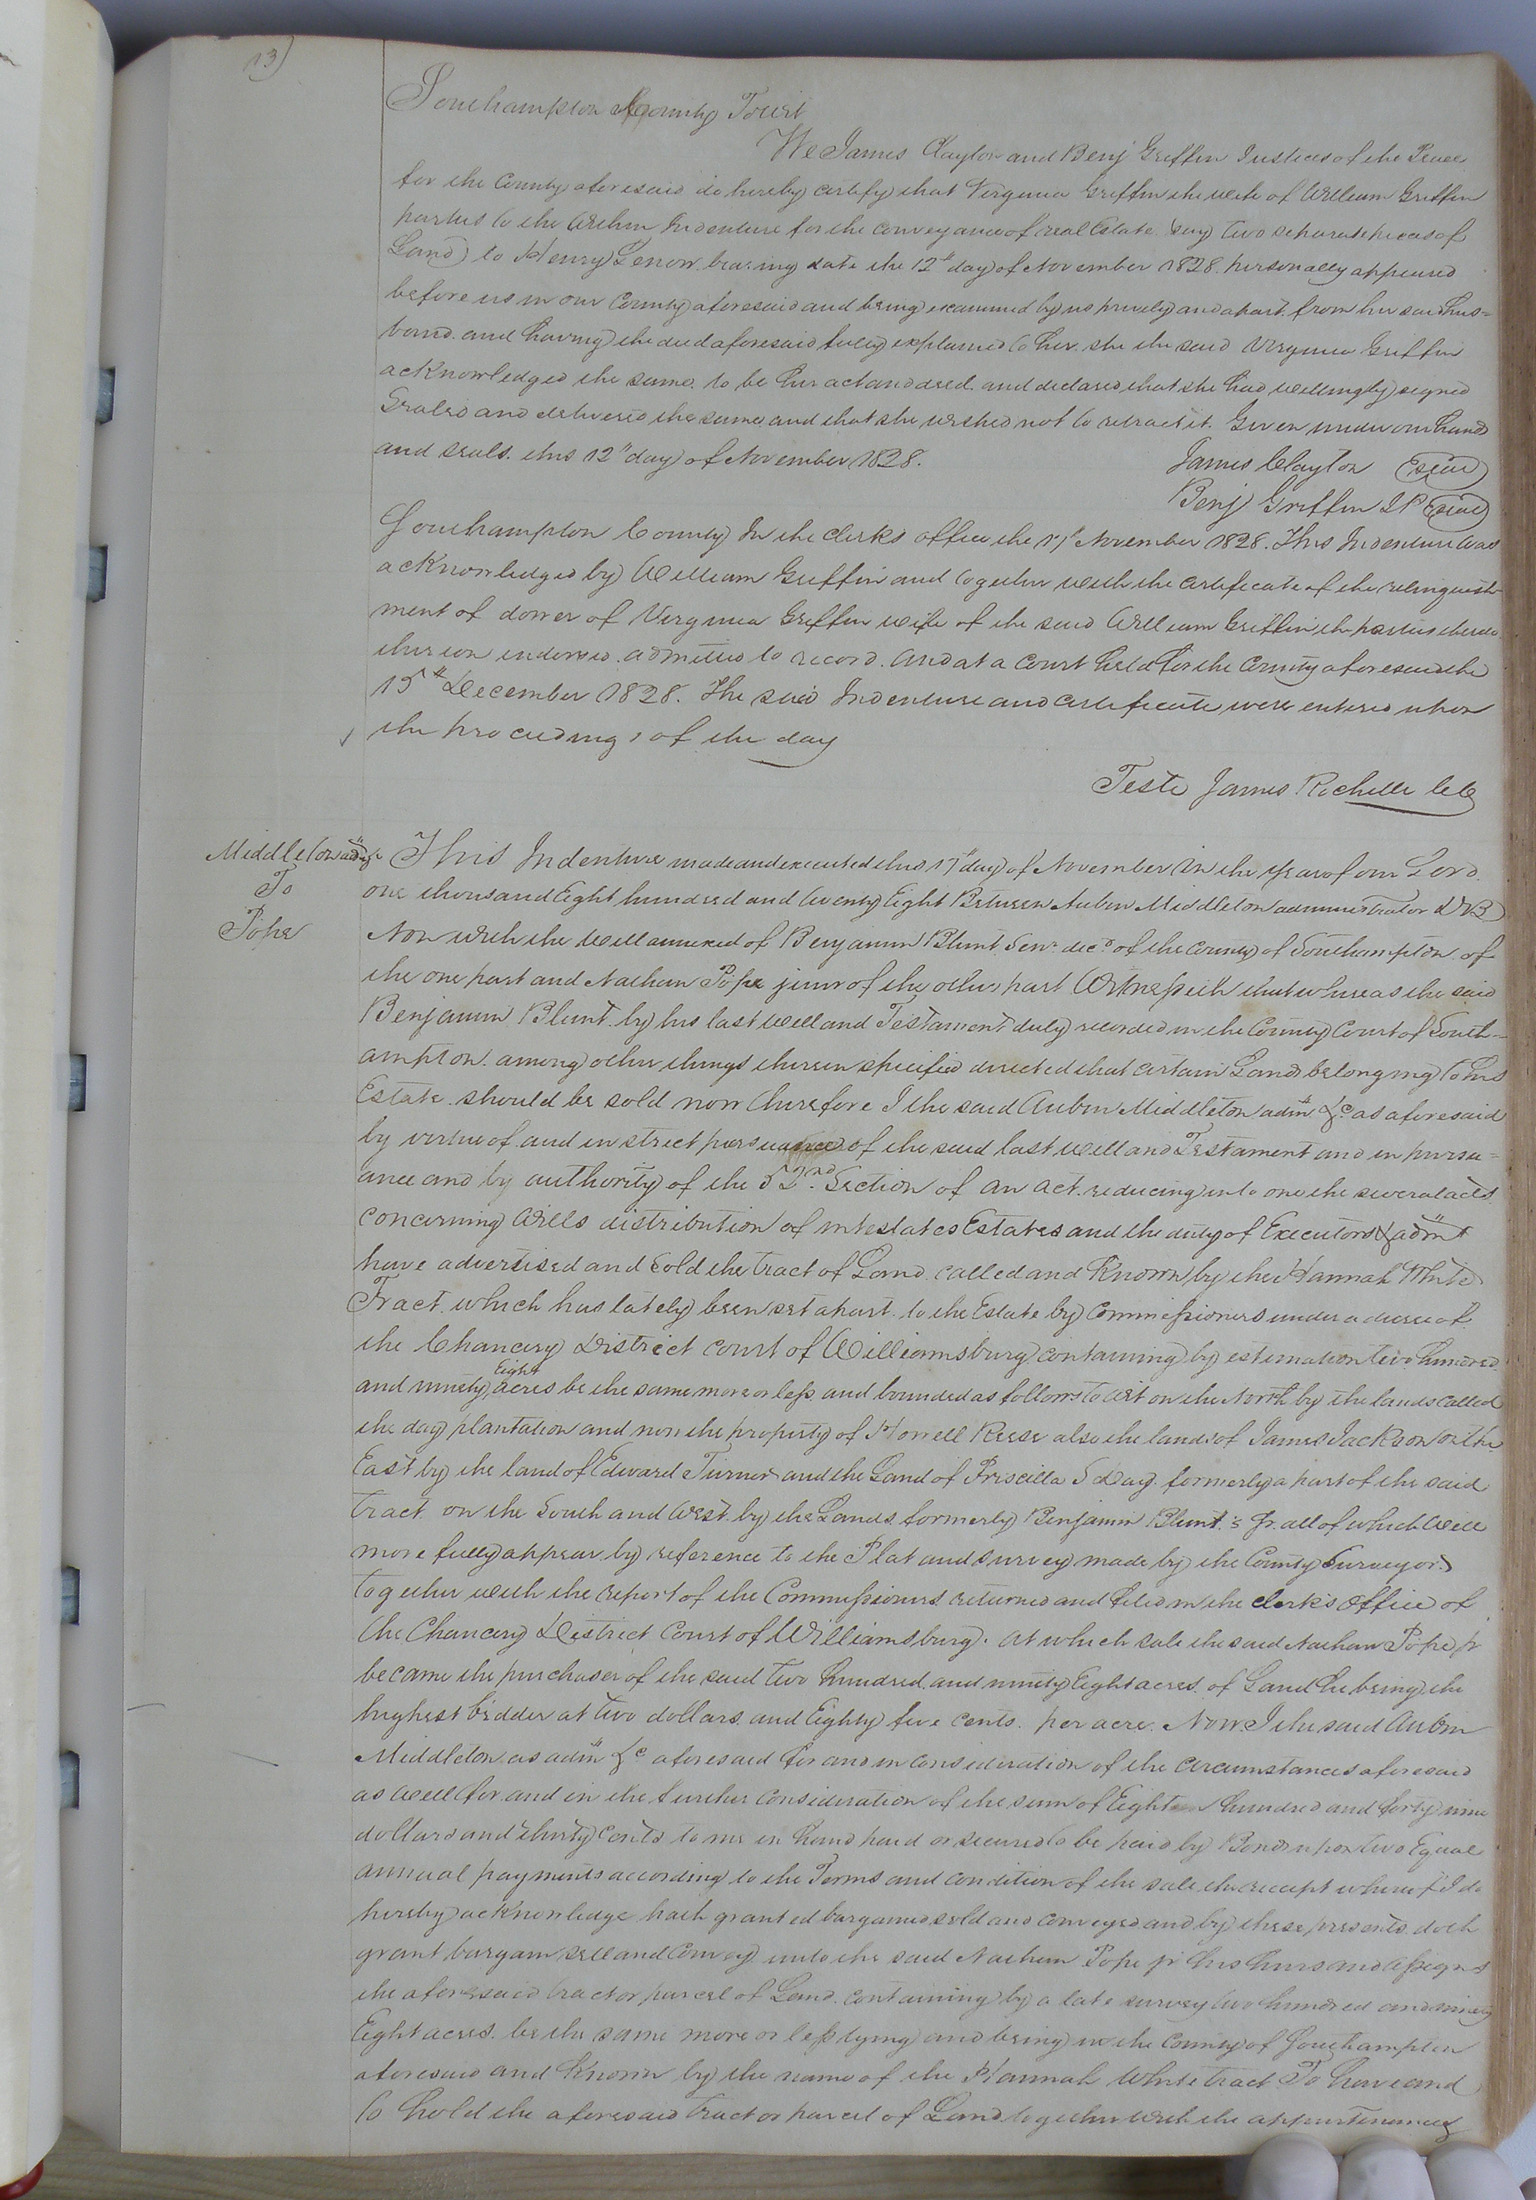 13)
Southampton County Towit
We James Clayton and Benj Griffin Justices of the Peace
for the County aforesaid do hereby certify that Virginia Griffin the wife of William Griffin
parties to the within Indenture for the conveyance of real Estate (say two separate pieces of
Land) to Henry Lenow bearing date the 12th day of November 1828 personally appeared
before us in our County aforesaid and being examined by us privily and apart from her said hus=
band and having the deed aforesaid fully explained to her she the said Virginia Griffin
acknowledged the same to be her act and deed and declared that she had willingly signed
Sealed and delivered the same and that she wished not to retract it. Given under our hands
and seals this 12th day of November 1828.
James Clayton (seal)
Benj Griffin J P (seal)
Southampton County In the clerks office the 17th November 1828. This Indenture was
acknowledged by William Griffin and together with the certificate of the relinquish-
ment of dower of Virginia Griffin wife of the said William Griffin the parties thereto
thereon endorsed admitted to record. And at a court held for the County aforesaid the
15th December 1828. The said Indenture and certificate were entered upon
the proceedings of the day
Teste James Rochelle CC
Middleton adm &c
To
Pope
This Indenture made and executed this 17th day of November in the year of our Lord
one thousand Eight hundred and twenty Eight Between Aubin Middleton administrator D B
Non with the will annexed of Benjamin Blunt Senr decd of the County of Southampton of
the one part and Nathan Pope junr of the other part Witnesseth that whereas the said
Benjamin Blunt by his last will and Testament duly recorded in the County Court of South-
ampton among other things therein specified directed that certain Lands belonging to his
Estate should be sold now therefore I the said Aubin Middleton adm &c as aforesaid
by virtue of and in strict pursuance of the said last will and Testament and in pursu=
ance and by authority of the 52nd Section of an act reducing into one the several acts
concerning Wills distribution of intestates Estates and the duty of Executors & adm
have advertised and sold the tract of Land called and Known by the Hannah White
Tract which has lately been set apart to the Estate by Commissioners under a decree of
the Chancery District court of Williamsburg containing by estimation two hundred
and ninety Eight acres be the same more or less and bounded as follows to wit on the North by the lands called
the day plantation and now the property of Howell Reese also the lands of James Jackson on the
East by the land of Edward Turner and the Land of Priscilla S Day formerly a part of the said
tract on the South and West by the Lands formerly Benjamin Blunt's Jr. all of which will
more fully appear by reference to the Plat and survey made by the County Surveyor
together with the report of the Commissioners returned and filed in the clerk's office of
the Chancery District Court of Williamsburg. at which sale the said Nathan Pope jr
became the purchaser of the said two hundred and ninety Eight acres of Land he being the
highest bidder at two dollars and Eighty five cents per acre. Now I the said Aubin
Middleton as adm &c aforesaid for and in consideration of the circumstances aforesaid
as well for and in the further consideration of the sum of Eight hundred and forty nine
dollars and thirty cents to me in hand paid or secured to be paid by Bonds upon two Equal
annual payments according to the Terms and condition of the sale the receipt whereof I do
hereby acknowledge hath granted bargained sold and conveyed and by these presents doth
grant bargain sell and convey unto the said Nathan Pope jr his heirs and assigns
the aforesaid tract or parcel of Land containing by a late survey two hundred and ninety
Eight acres be the same more or less lying and being in the County of Southampton
aforesaid and known by the name of the Hannah White tract To have and
to hold the aforesaid tract or parcel of Land together with the appurtenances